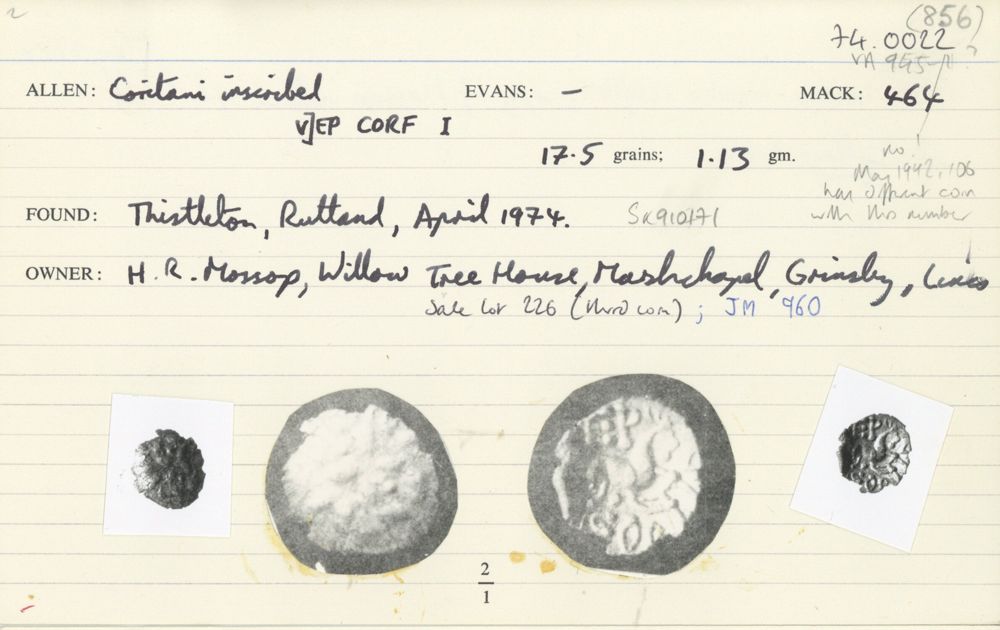 (856)
74.0022
VA 945-11?
ALLEN: Coritani inscribed EVANS: — MACK: 464
V]EP CORF I
17.5 grains; 1.13 gm.
no!
May 1942, 106
has different coin
with this number
FOUND: Thistleton, Rutland, April 1974. SK910171
OWNER: H.R. Mossop, Willow Tree House, Marshchapel, Grimsby, Lincs
Sale Lot 226 (third coin); JM 960
2
1